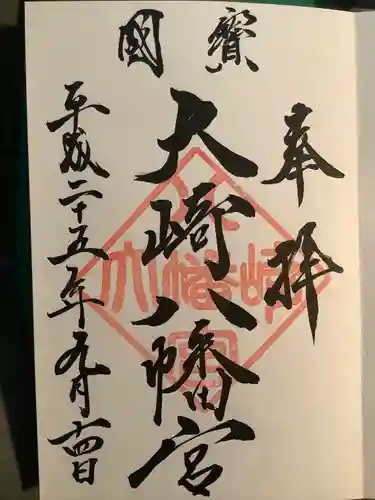 國寶
奉拝
大崎八幡宮
平成二十五年九月十四日